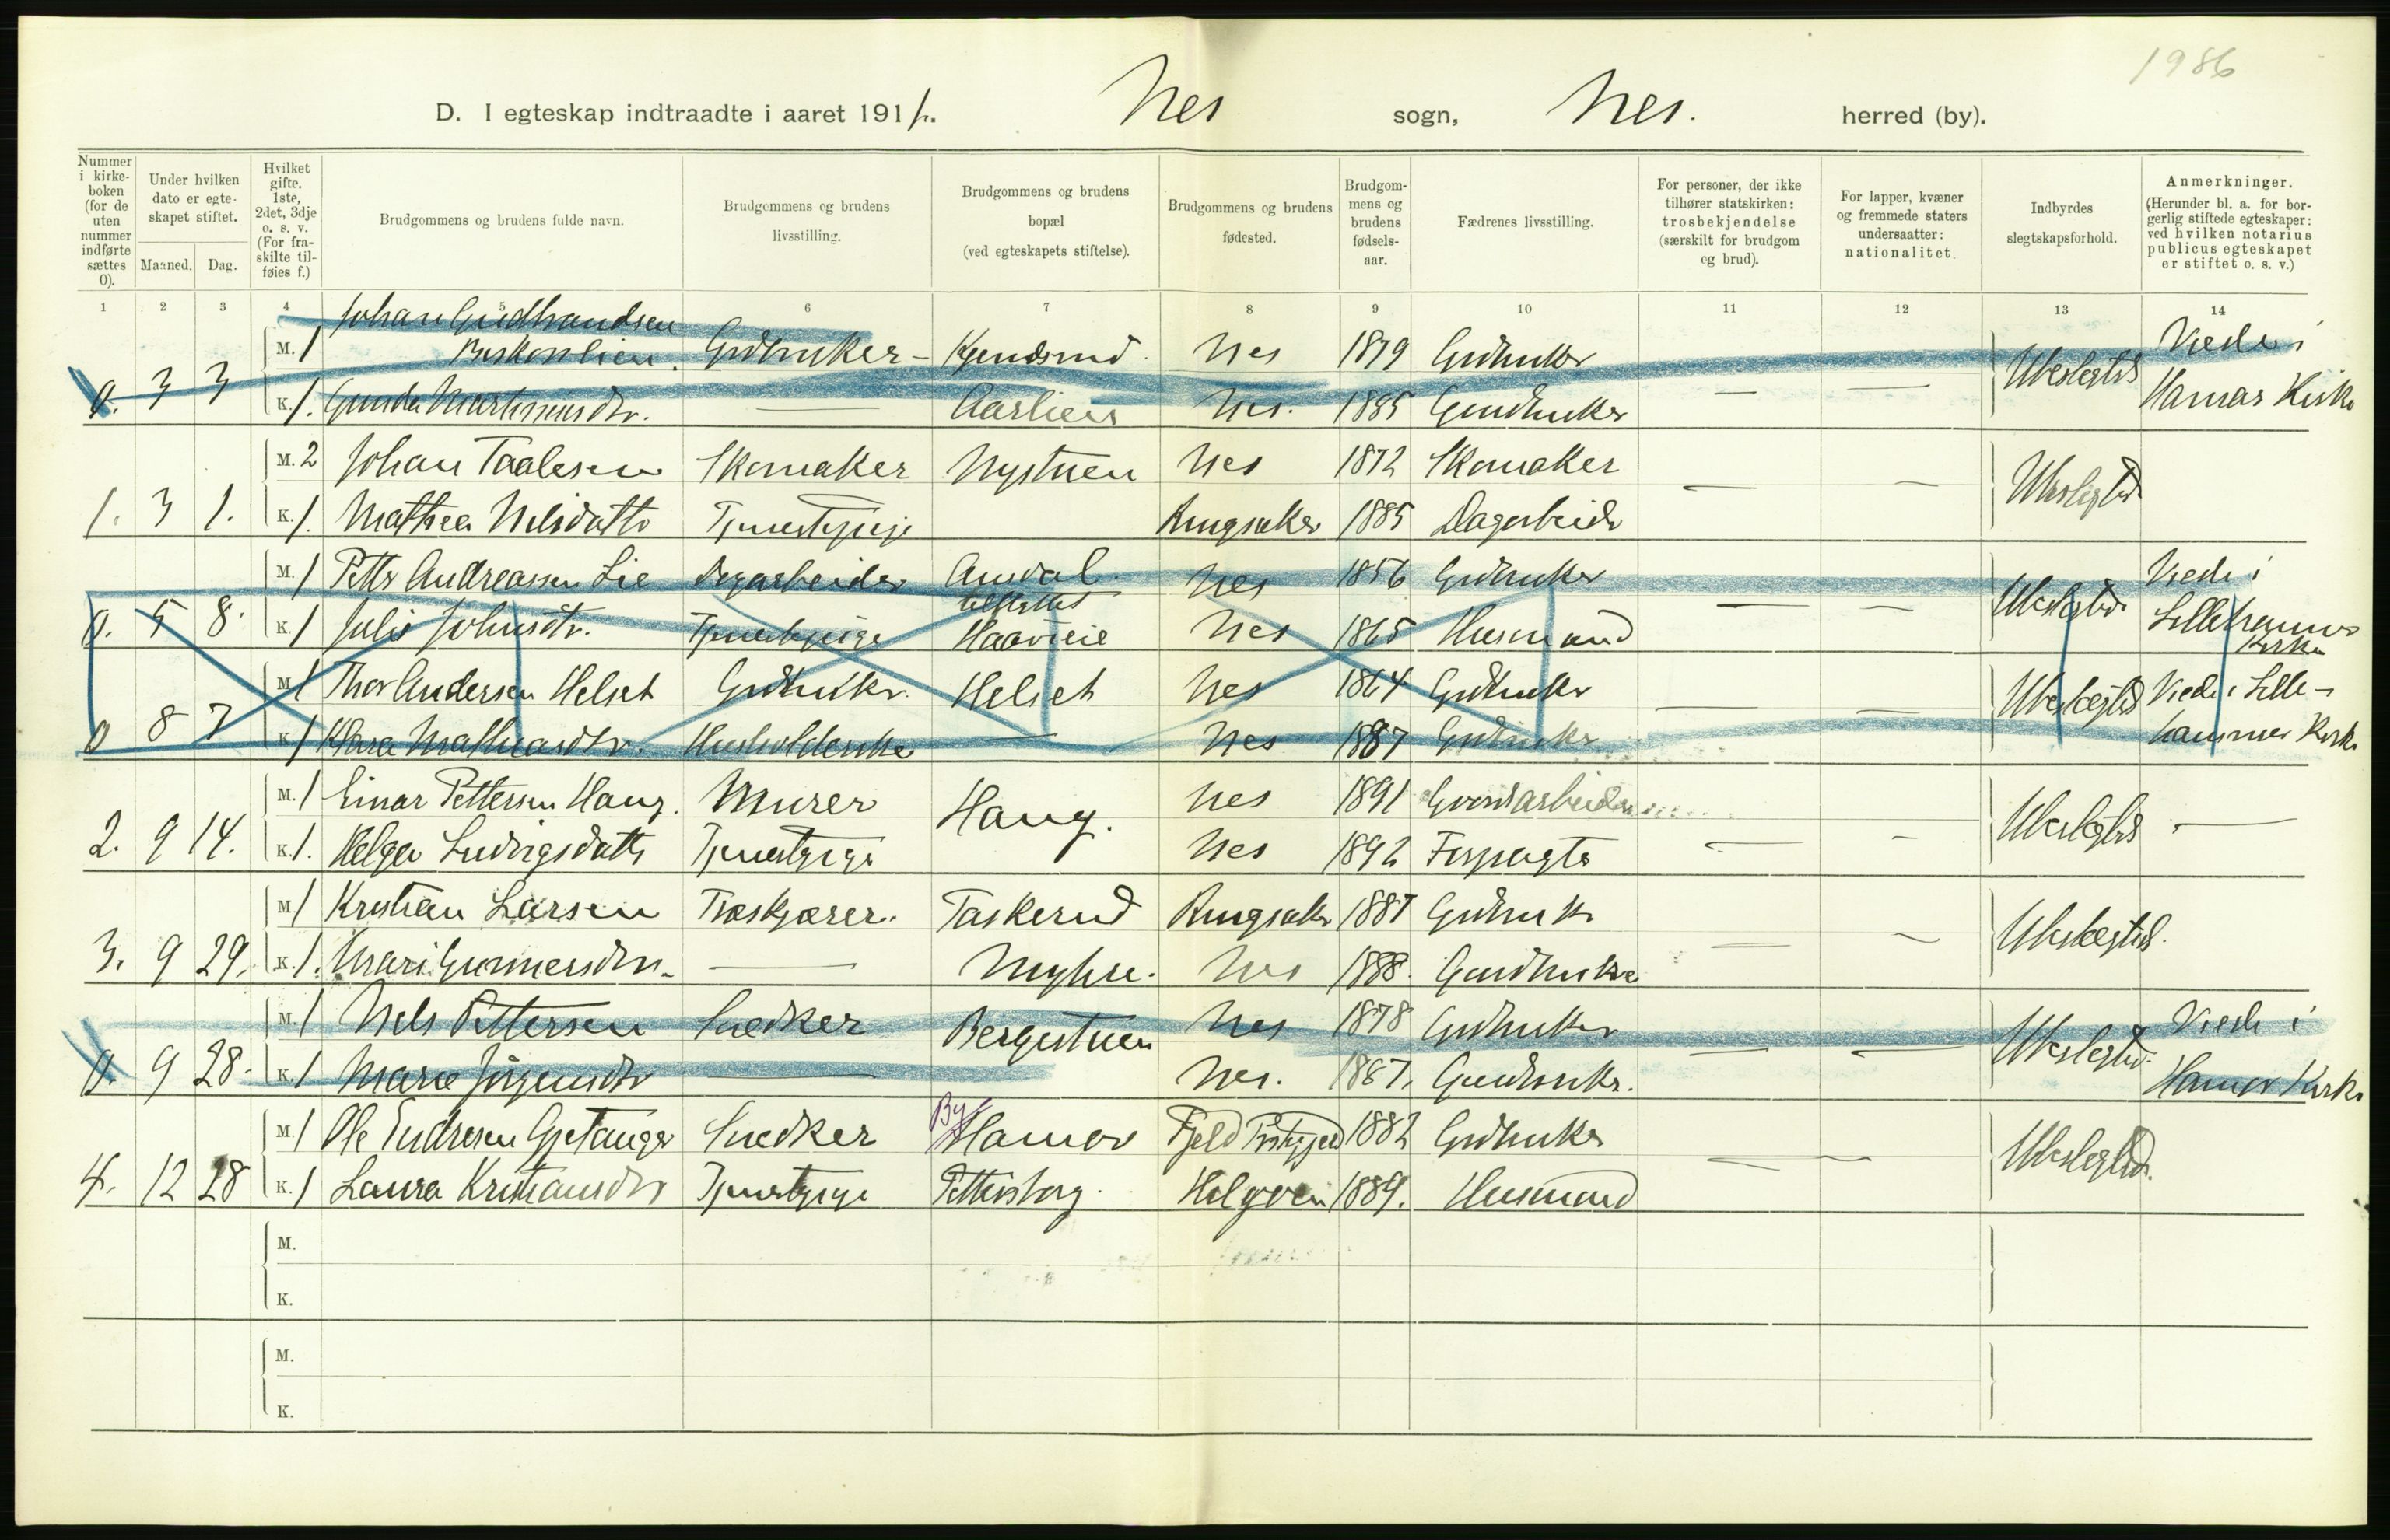 1986
D. I egteskap indtraadte i aaret 1911. Nes sogn, Nes. herred (by).
Nummer i kirkeboken (for de uten nummer indførte sættes 0).
Under hvilken dato er egteskapet stiftet.
Maaned. Dag.
Hvilket gifte. 1ste, 2det, 3dje o. s. v. (For fraskilte tilføies f.)
Brudgommens og brudens fulde navn.
Brudgommens og brudens livsstilling.
Brudgommens og brudens bopæl (ved egteskapets stiftelse).
Brudgommens og brudens fødested.
Brudgommens og brudens fødselsaar.
Fædrenes livsstilling.
For personer, der ikke tilhører statskirken: trosbekjendelse (særskilt for brudgom og brud).
For lapper, kvæner og fremmede staters undersaatter: nationalitet.
Indbyrdes slegtskapsforhold.
Anmerkninger. (Herunder bl. a. for borgerlig stiftede egteskaper: ved hvilken notarius publicus egteskapet er stiftet o. s. v.)
1 2 3 4 5 6 7 8 9 10 11 12 13 14
Johan Gudbrandsen
M. 1 Grdbruker - Kjendsrud. Nes 1879 Grdbruker Viede i
0. 3 3 Ubeslegted
K. 1. Gunda Martinusdtr. — Aarlien Nes. 1885 Gaardbruker — — Hamar Kirke
M. 2 Johan Taalesen Skomaker Nystuen Nes 1872 Skomaker
1. 3 1. — — Ubeslegted
K. 1. Mathea Nilsdatter Tjenestepige Ringsaker 1885 Dagarbeider
M. 1 Petter Andreassen Lie Dagarbeider Amdal Nes 1856 Grdbruker Viede i
0. 5 8. — — Ubeslegted
K. 1 Julie Johnsdtr. Tjenestepige Haavieie Nes 1865 Husmand Lillehammer Kirke
M. 1 Thor Andersen Helset Grdbruker. Helset Nes 1864 Grdbruker Viede i Lille-
0 8 7 — — Ubeslegted
K. 1 Klara Mathiasdtr. Husholderske — Nes 1887 Grdbruker hammer Kirke
M. 1 Einar Pettersen Haug. Murer Haug. Nes 1891 Gaardsarbeider
2. 9 14. — — Ubeslegted —
K. 1. Helga Ludvigsdatter Tjenestepige Nes 1892 Forpagter
M. 1 Kristian Larsen Træskjærer. Taskerud Ringsaker 1887 Grdbruker
3. 9 29. — — Ubeslegted.
K. 1. Mari Gunnersdtr. — Myhre. Nes 1888. Gaardbruker
M. 1 Nils Pettersen Snedker Bergestuen Nes 1878 Grdbruker Viede i
0. 9 28. — — Ubeslegted.
K. 1 Marie Jørgensdtr — Nes. 1867. Gaardbruker. Hamar Kirke
M. 1 Ole Endresen Gjetanger Snedker By Hamar Fjeld Prstegjeld 1882 Grdbruker
4. 12 28 — — Ubeslegted.
K. 1 Laura Kristiansdtr Tjenestepige Pettersborg. Helgøen 1889. Husmand
M.
K.
M.
K.